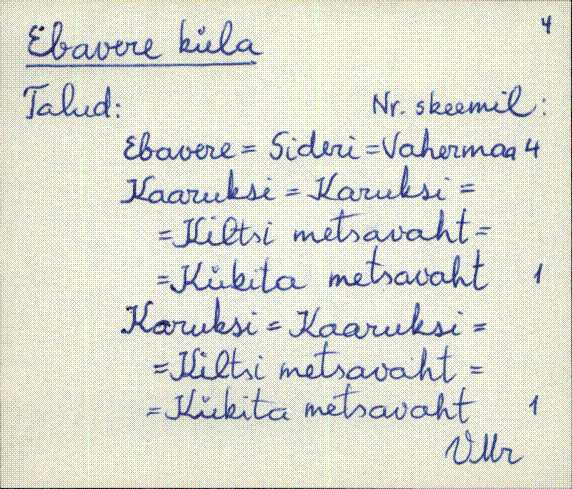 4
Ebavere küla
Talud: Nr. skeemil:
Ebavere = Sideri = Vahermaa 4
Kaaruksi = Karuksi =
= Kiltsi metsavaht =
= Kükita metsavaht 1
Karuksi = Kaaruksi =
= Kiltsi metsavaht =
= Kükita metsavaht 1
VMr